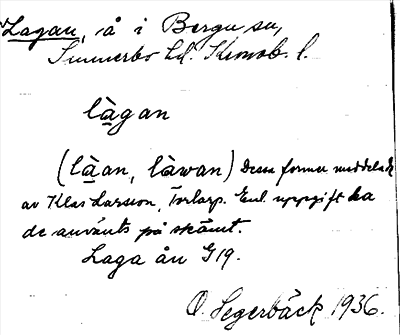 Lagan, å i Berga sn,
Sunnerbo hd. Kronob. l.
làgan
(làan, làwan) Dessa former meddelade
av Klas Larsson, Torlarp. Enl. uppgift ha
de använts på skämt.
Laga ån G 19.
O. Segerbäck 1936.